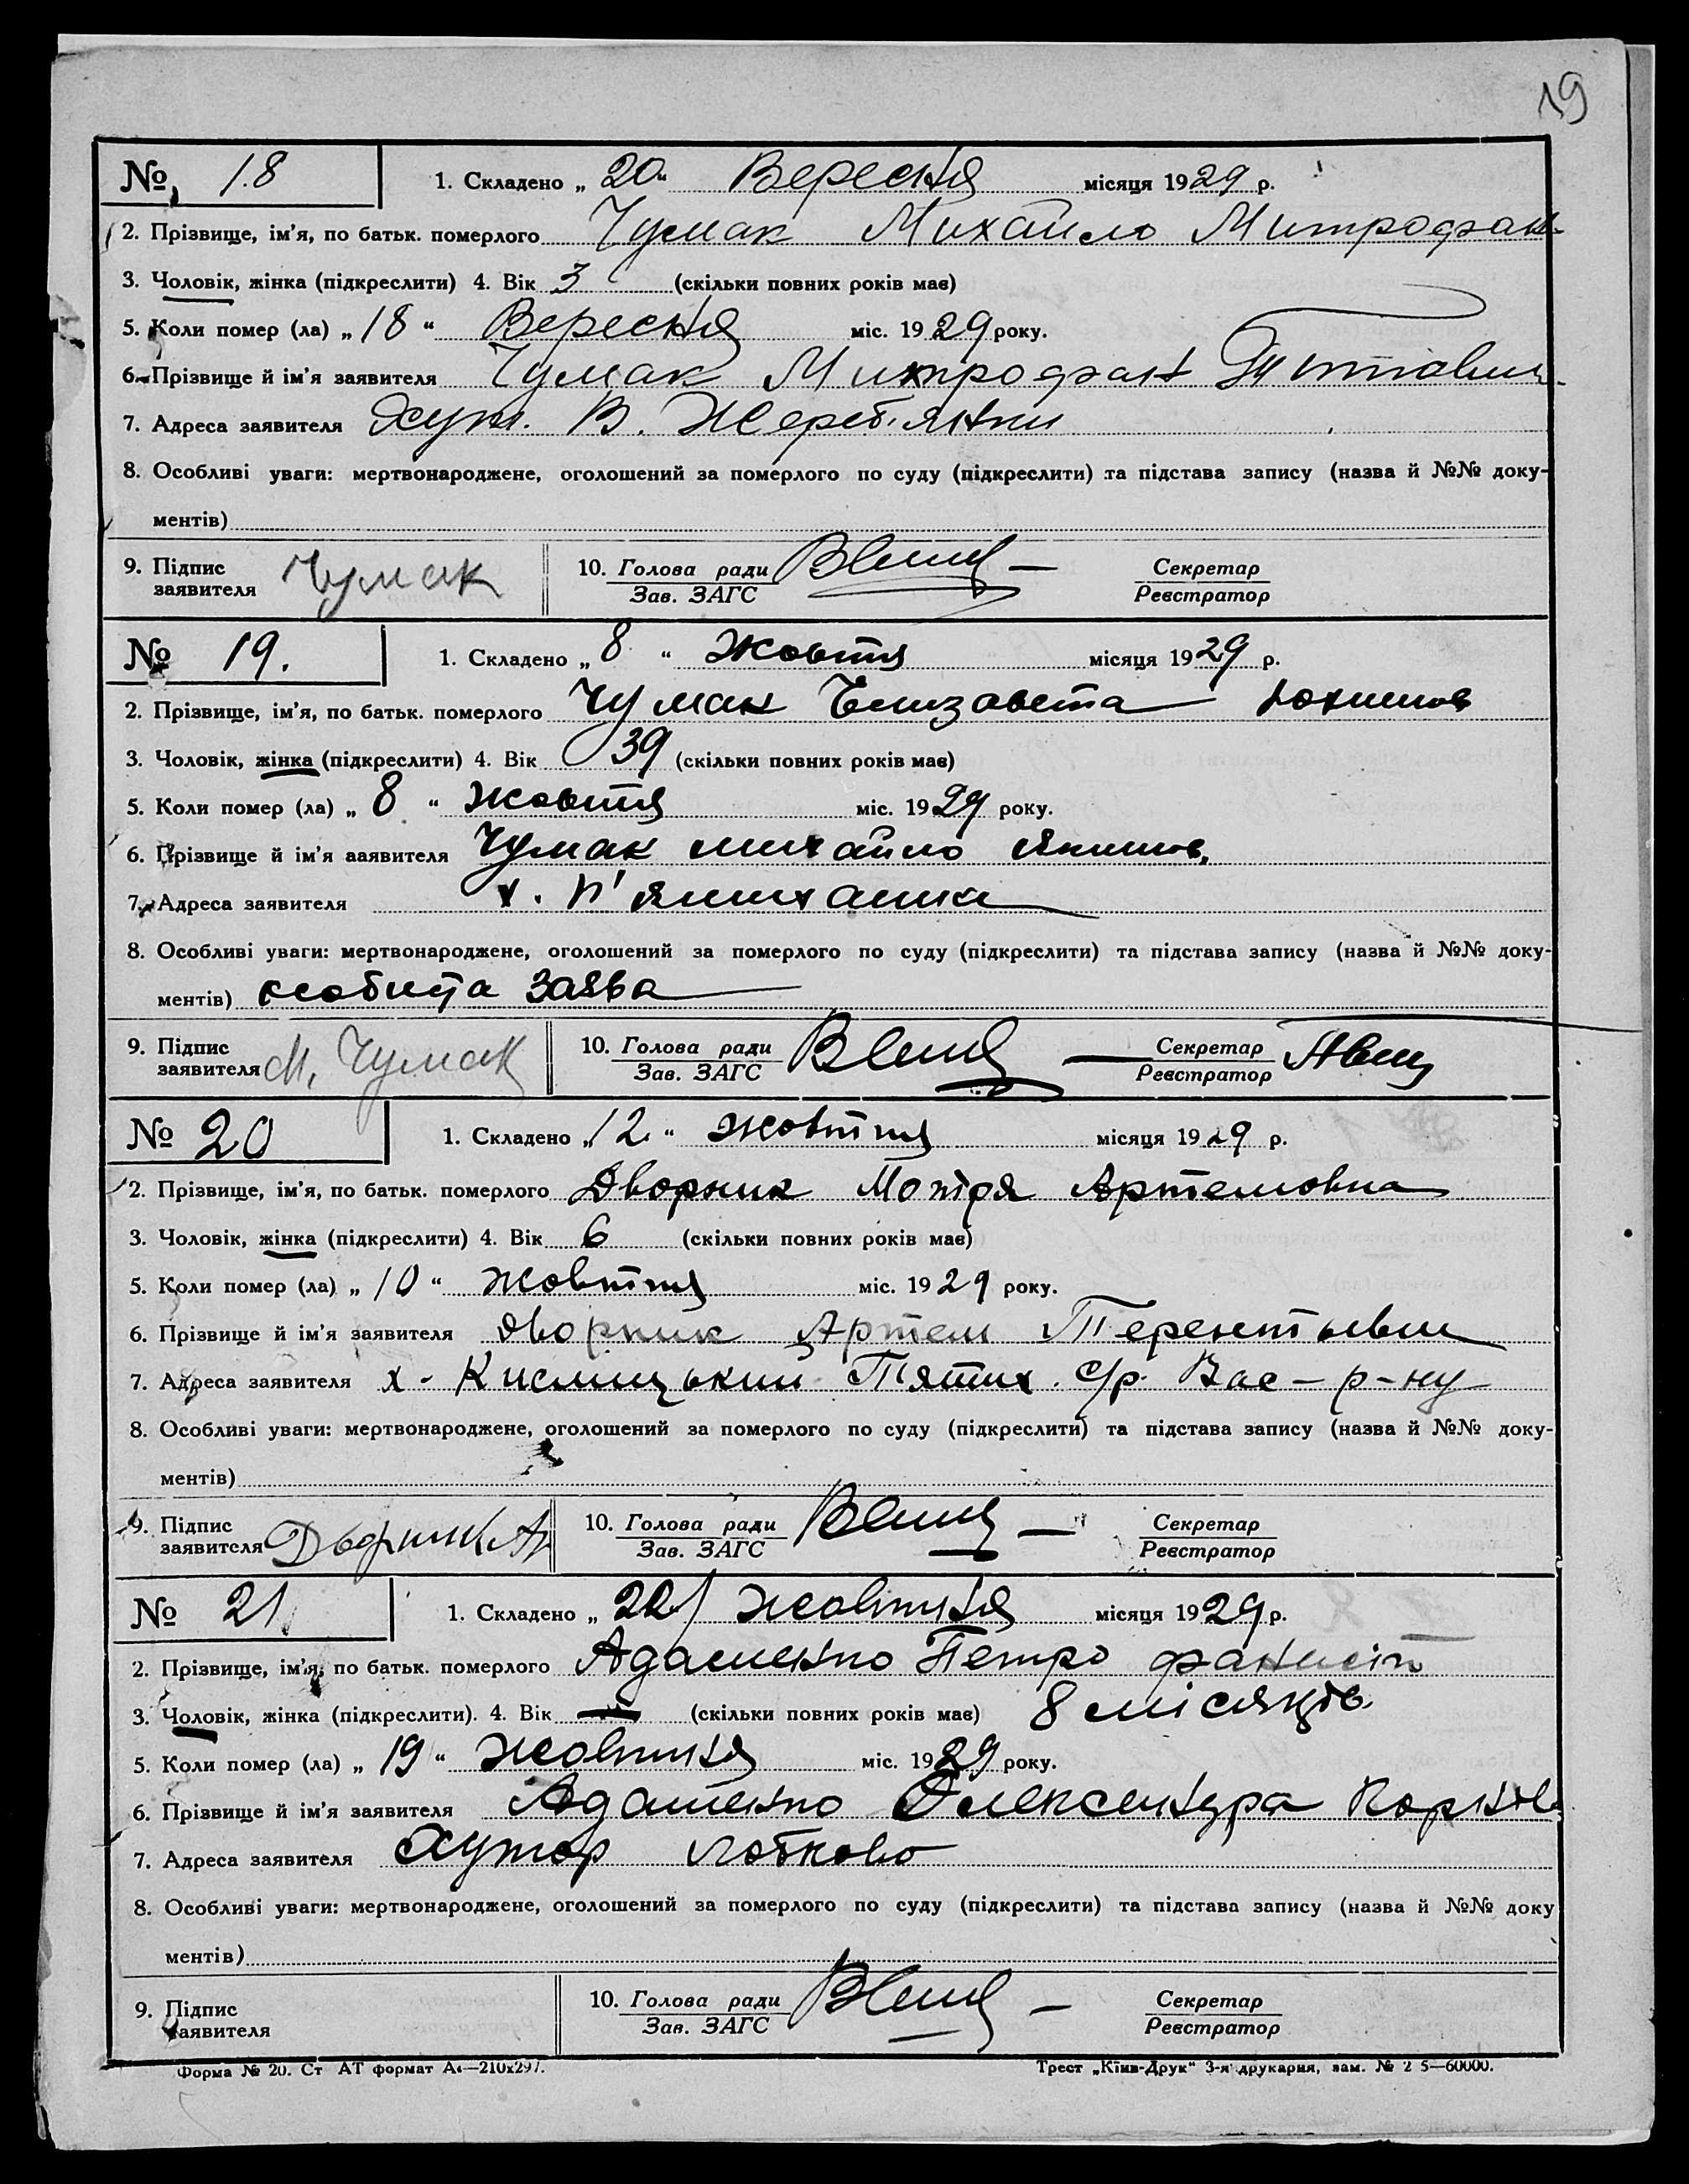 19
№ 18 1. Складено „ 20 " Вересня місяця 1929 р.
2. Прізвище, ім'я, по батьк. померлого Чумак Михайло Митрофан
3. Чоловік, жінка (підкреслити) 4. Вік 3 (скільки повних років має)
5. Коли помер (ла) „ 18 " Вересня міс. 1929 року.
6. Прізвище й ім'я заявителя Чумак Митрофан
7. Адреса заявителя Хут. В. Жереб'ятни
8. Особливі уваги: мертвонароджене, оголошений за померлого по суду (підкреслити) та підстава запису (назва й №№ доку-
ментів)
9. Підпис заявителя Чумак 10. Голова ради Зав. ЗАГС Секретар Реєстратор
№ 19. 1. Складено „ 8 " Жовтя місяця 1929 р.
2. Прізвище, ім'я, по батьк. померлого Чумак Елизавета Юхимов
3. Чоловік, жінка (підкреслити) 4. Вік 39 (скільки повних років має)
5. Коли помер (ла) „ 8 " жовтя міс. 1929 року.
6. Прізвище й ім'я заявителя Чумак михайло Якимов.
7. Адреса заявителя х. П'ятихатки
8. Особливі уваги: мертвонароджене, оголошений за померлого по суду (підкреслити) та підстава запису (назва й №№ доку-
ментів) особиста заява
9. Підпис заявителя М. Чумак 10. Голова ради Зав. ЗАГС Секретар Реєстратор
№ 20 1. Складено „ 12 " жовтня місяця 1929 р.
2. Прізвище, ім'я, по батьк. померлого Дворник Мотря Артемовна
3. Чоловік, жінка (підкреслити) 4. Вік 6 (скільки повних років має)
5. Коли помер (ла) „ 10 " жовтня міс. 1929 року.
6. Прізвище й ім'я заявителя Дворник Артем Терентьевич
7. Адреса заявителя х. Кислицький П'ятих. с/р. Вас-р-ну
8. Особливі уваги: мертвонароджене, оголошений за померлого по суду (підкреслити) та підстава запису (назва й №№ доку-
ментів)
9. Підпис заявителя Дворник А 10. Голова ради Зав. ЗАГС Секретар Реєстратор
№ 21 1. Складено „ жовтня місяця 1929 р.
2. Прізвище, ім'я, по батьк. померлого Адаменко Петро
3. Чоловік, жінка (підкреслити). 4. Вік (скільки повних років має) 8 місяців
5. Коли помер (ла) „ 19 " жовтня міс. 1929 року.
6. Прізвище й ім'я заявителя Адаменко Олександра Корнів
7. Адреса заявителя Хутор Лобково
8. Особливі уваги: мертвонароджене, оголошений за померлого по суду (підкреслити) та підстава запису (назва й №№ доку
ментів)
9. Підпис заявителя 10. Голова ради Зав. ЗАГС Секретар Реєстратор
Форма № 20. Ст АТ формат А4—210х297. Трест „Київ-Друк" 3-я друкарня, зам. № 2 5—60000.